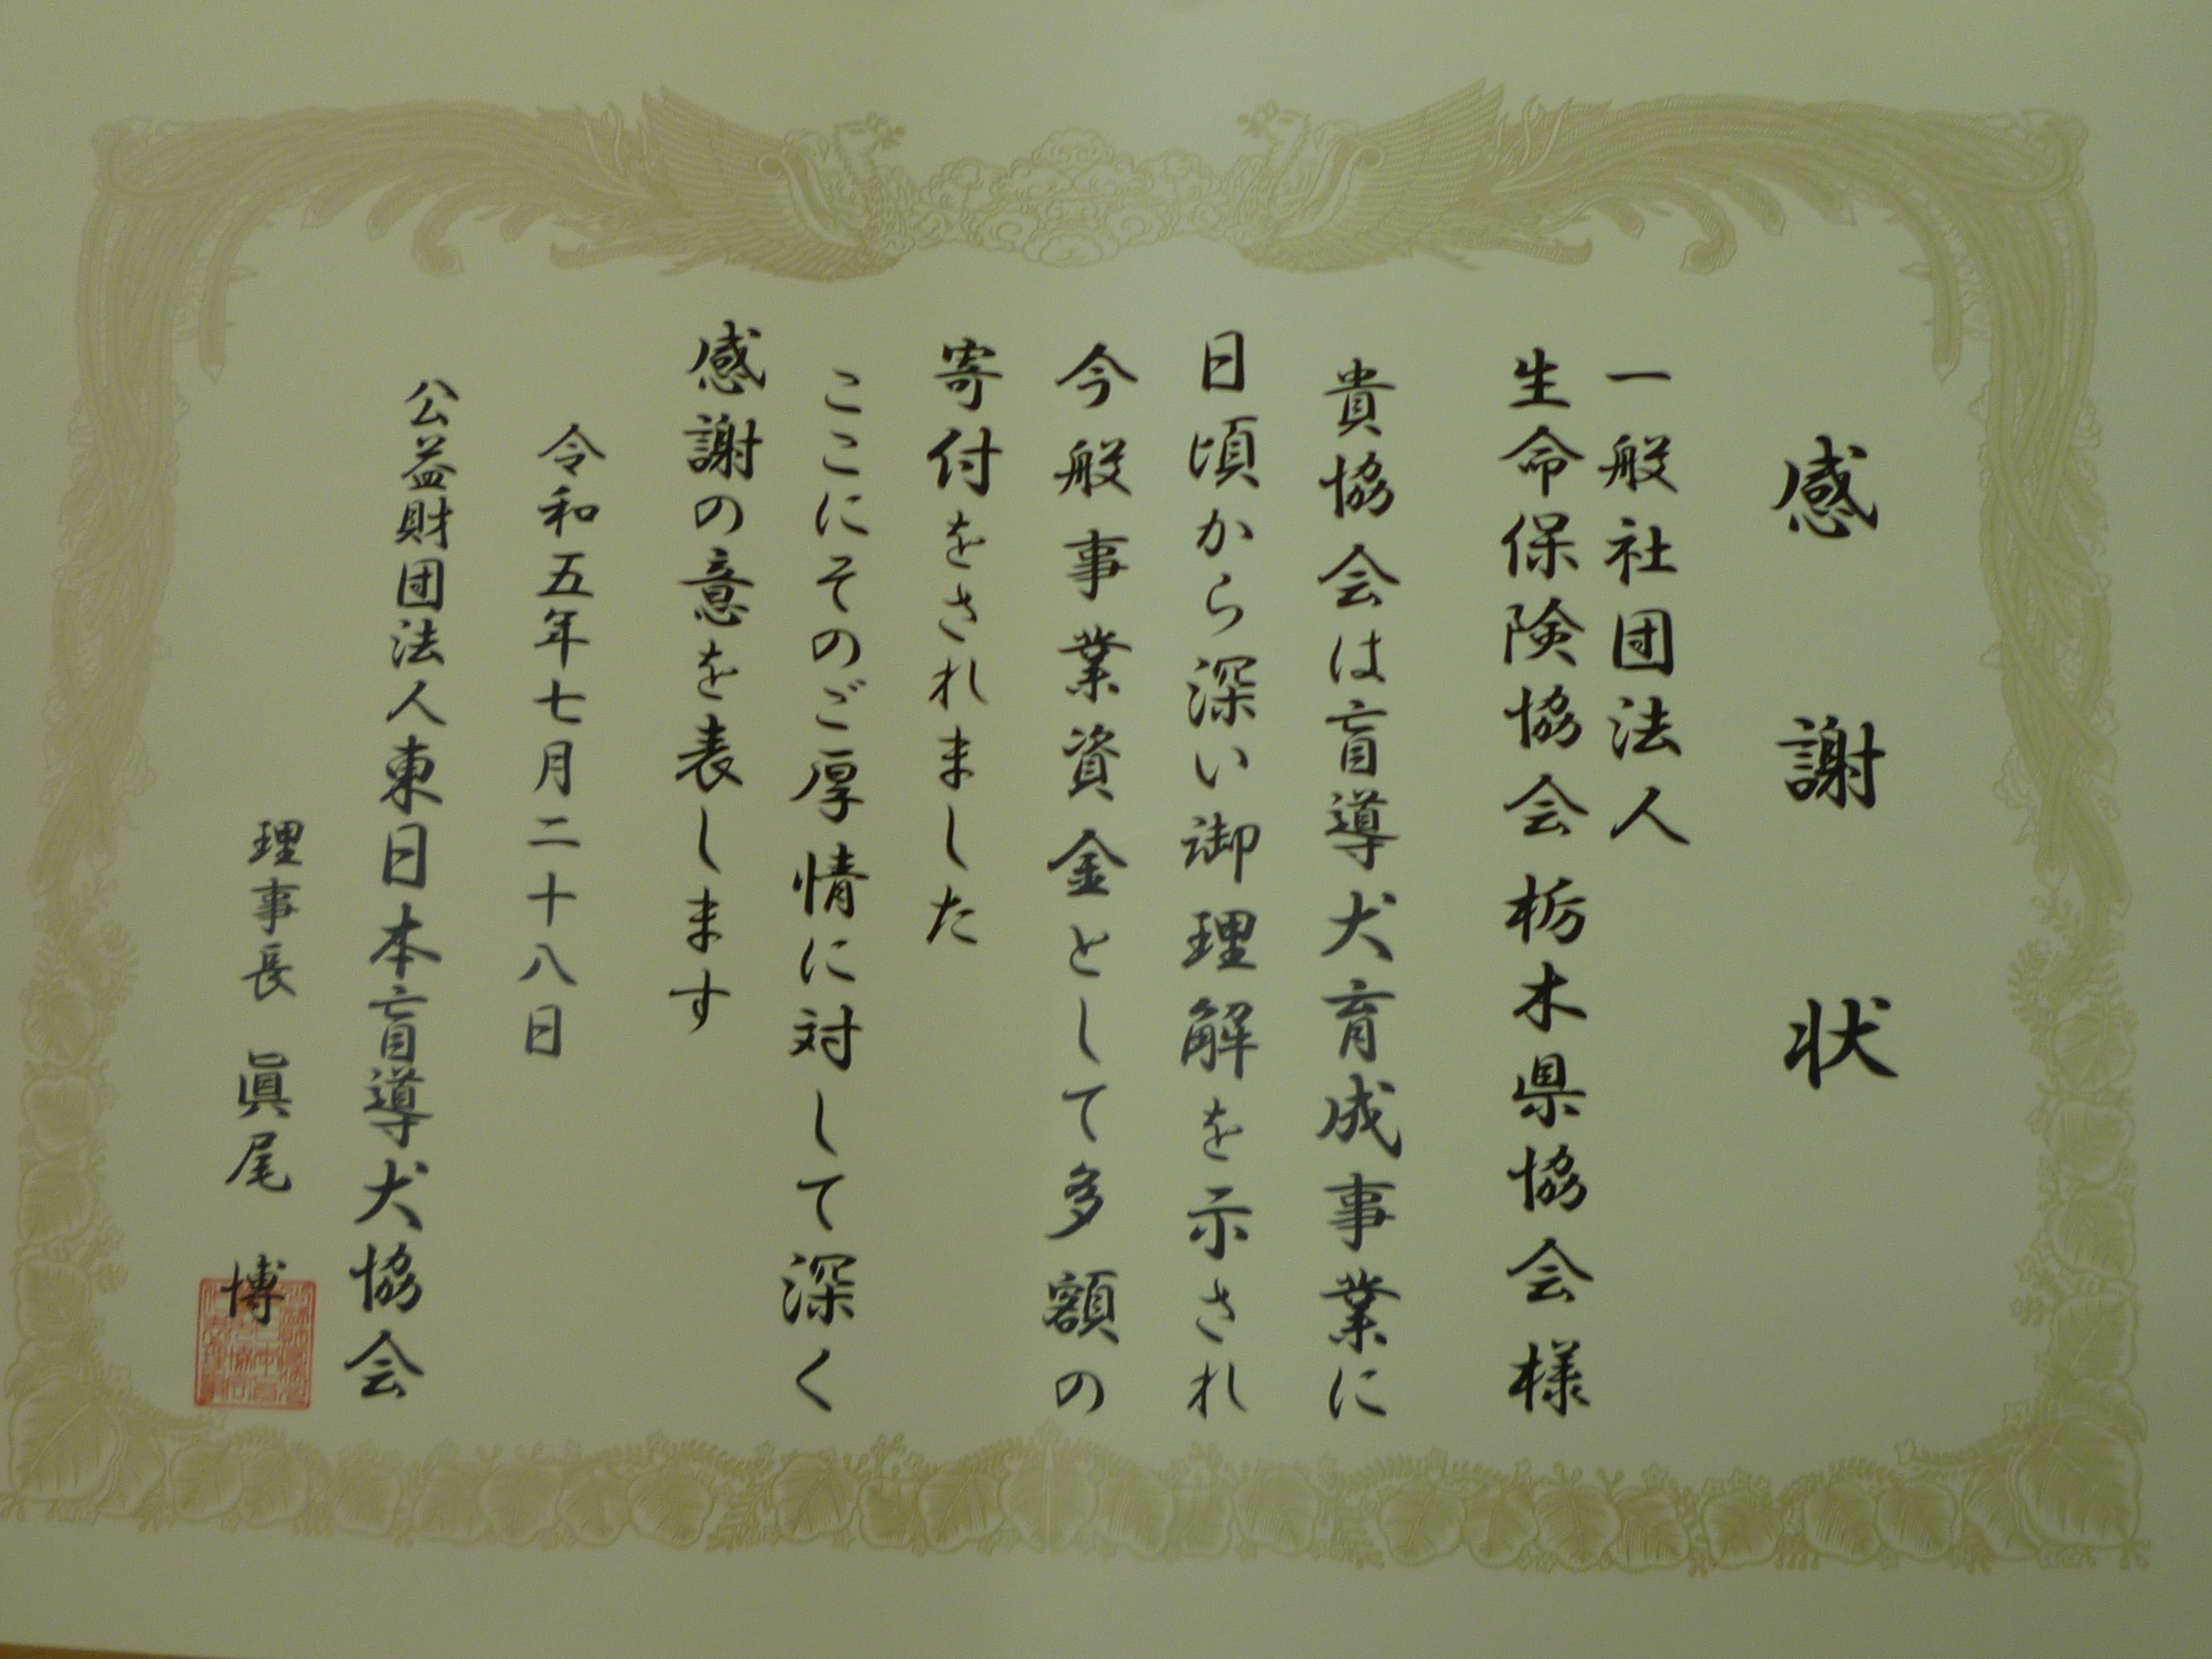 感謝状
一般社団法人
生命保険協会栃木県協会様
貴協会は盲導犬育成事業に
日頃から深い御理解を示され
今般事業資金として多額の
寄付をされました
ここにそのご厚情に対して深く
感謝の意を表します
令和五年七月二十八日
公益財団法人東日本盲導犬協会
理事長 眞尾 博